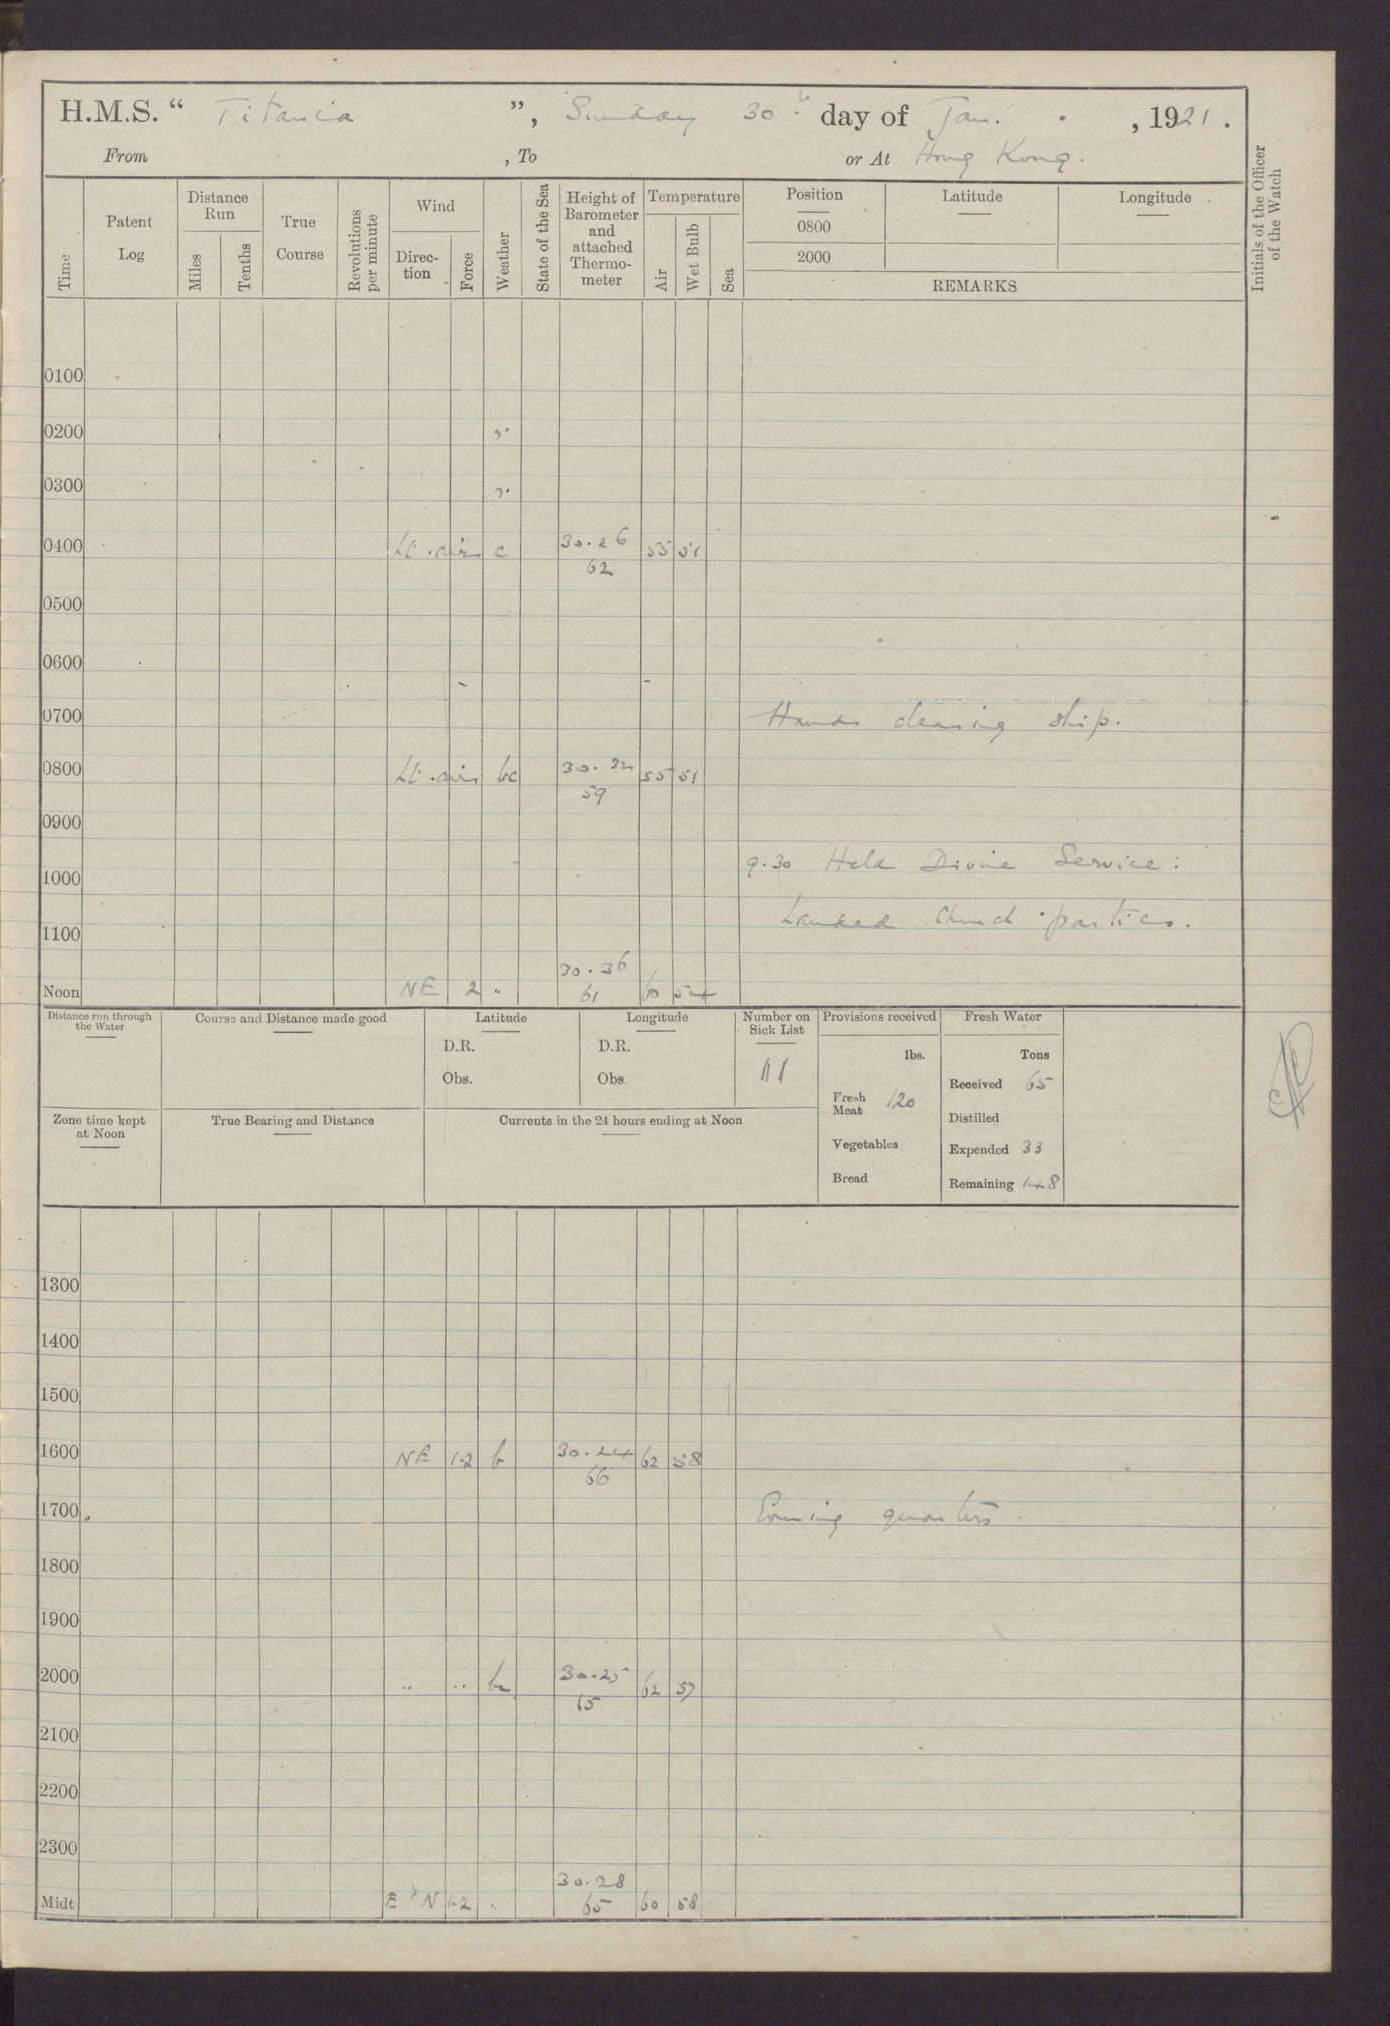 H.M.S. “ Titania ”, Sunday 30th day of Jan. , 1921.
From , To or At Hong Kong.
Time
Patent Log
Distance Run
Miles
Tenths
True Course
Revolutions per minute
Wind
Direction
Force
Weather
State of the Sea
Height of Barometer and attached Thermometer
Temperature
Air
Wet Bulb
Sea
Position Latitude Longitude
0800
2000
REMARKS
Initials of the Officer of the Watch
0100
0200
0300
0400 Lt. airs c 30.26 55 51
62
0500
0600
0700 Hands cleaning ship.
0800 Lt. airs bc 30.32 55 51
59
0900
9.30 Held Divine Service:
1000
Landed Church parties.
1100
30.36
Noon NE 2 " 61 60 54
Distance run through the Water
Course and Distance made good
Latitude
D.R.
Obs.
Longitude
D.R.
Obs.
Number on Sick List
11
Provisions received
lbs.
Fresh Meat 120
Vegetables
Bread
Fresh Water
Tons
Received 65
Distilled
Expended 33
Remaining 148
Zone time kept at Noon
True Bearing and Distance
Currents in the 24 hours ending at Noon
1300
1400
1500
1600 NE 1-2 b 30.24 62 58
66
1700 Evening quarters.
1800
1900
2000 " " bc 30.25 62 57
65
2100
2200
2300
30.28
Midt E'N 1-2 " 65 60 58